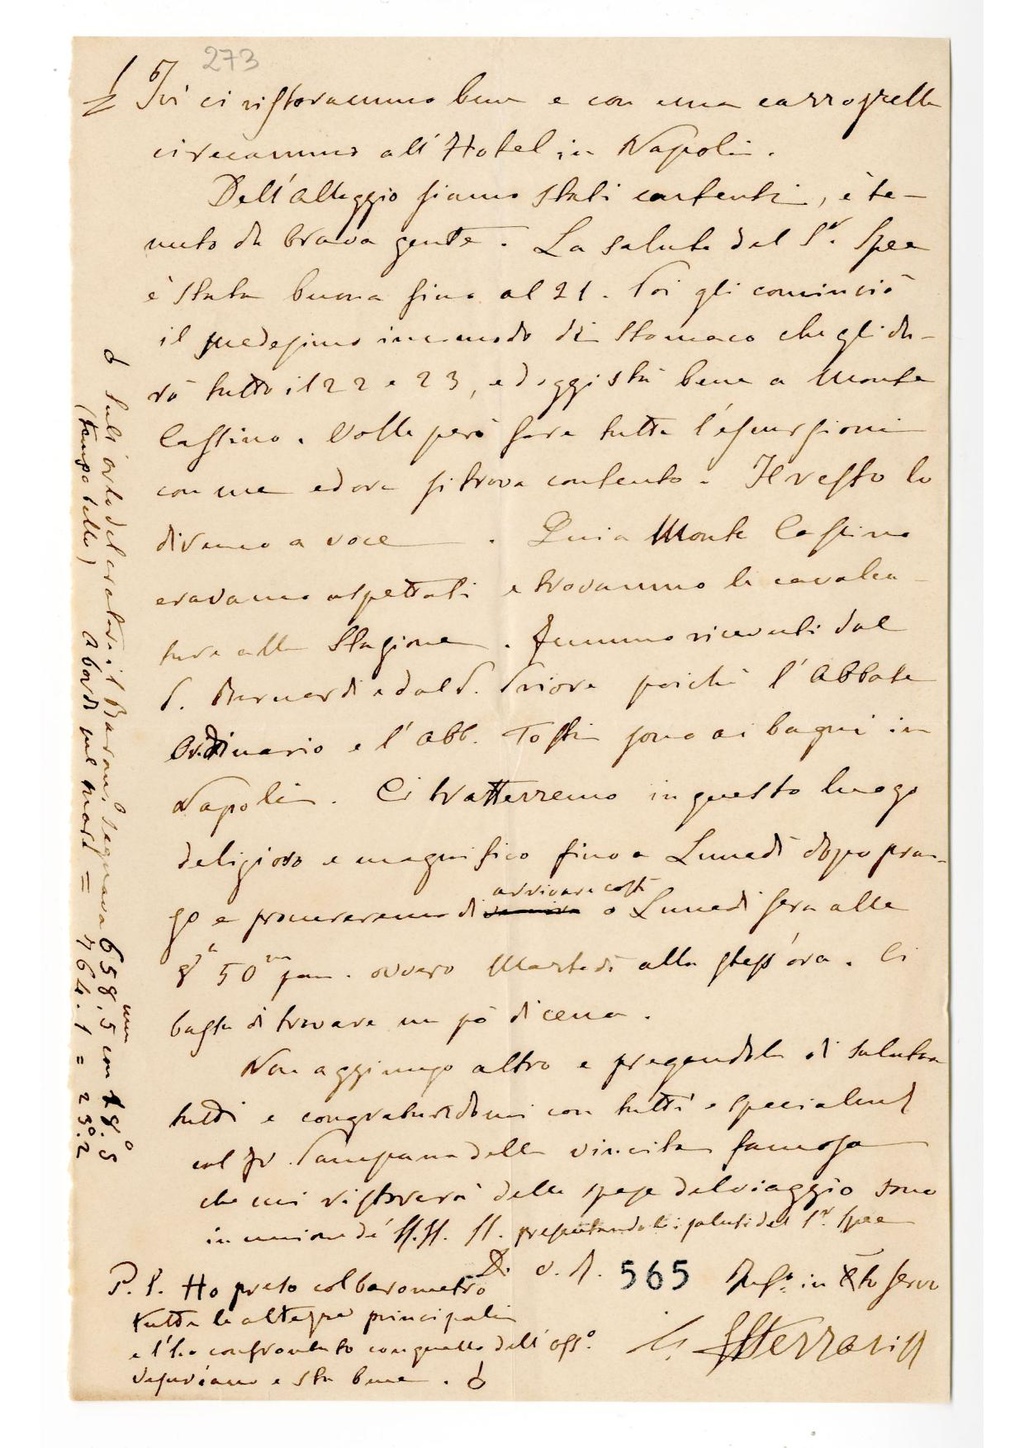 273
Ivi ci ristorammo bene e con una carrozzella
ci recammo all'Hotel in Napoli.
Dell'Alloggio siamo stati contenti, è te-
nuto da brava gente. La salute del Sr. Spee
è stata buona fino al 21. Poi gli cominciò
il medesimo incomodo di stomaco che gli du-
rò tutto il 22 e 23, ed oggi stà bene a Monte
Cassino. Volle però fare tutte l'escursioni
con me ed ora si trova contento. Il resto lo
diremo a voce. Qui a Monte Cassino
eravamo aspettati e trovammo le cavalca-
ture alla Stazione. Fummo ricevuti dal
P. Bernardi e dal P. Priore poichè l'Abbate
Ordinario e l'Abb. Tosti sono ai bagni in
Napoli. Ci tratterremo in questo luogo
delizioso e magnifico fino a Lunedì dopo pran-
zo e procureremo di arrivare costì o Lunedì sera alle
8h 50m pom. ovvero Martedì alla stess'ora. Ci
basta di trovare un pò di cena.
Non aggiungo altro e pregandola di salutar
tutti e congratularsi con tutti e specialmente
col Fr. Campana della vincita famosa
che mi ristorerà delle spese del viaggio sono
in unione dé SS. SS. presentandole i saluti del Sr. Spee
D. V. R. 565 Inf.o in Xto servo
G. S. Ferrari
P. S. Ho preso col barometro
tutte le altezze principali
e l'ho confrontato con quello dell'Oss.o
Vesuviano e sta bene.
Sull'orlo del cratere il Barom. segnava 658.5 mm con 18°.5
(tempo bello) A bordo sul mare = 764.1 = 23°.2